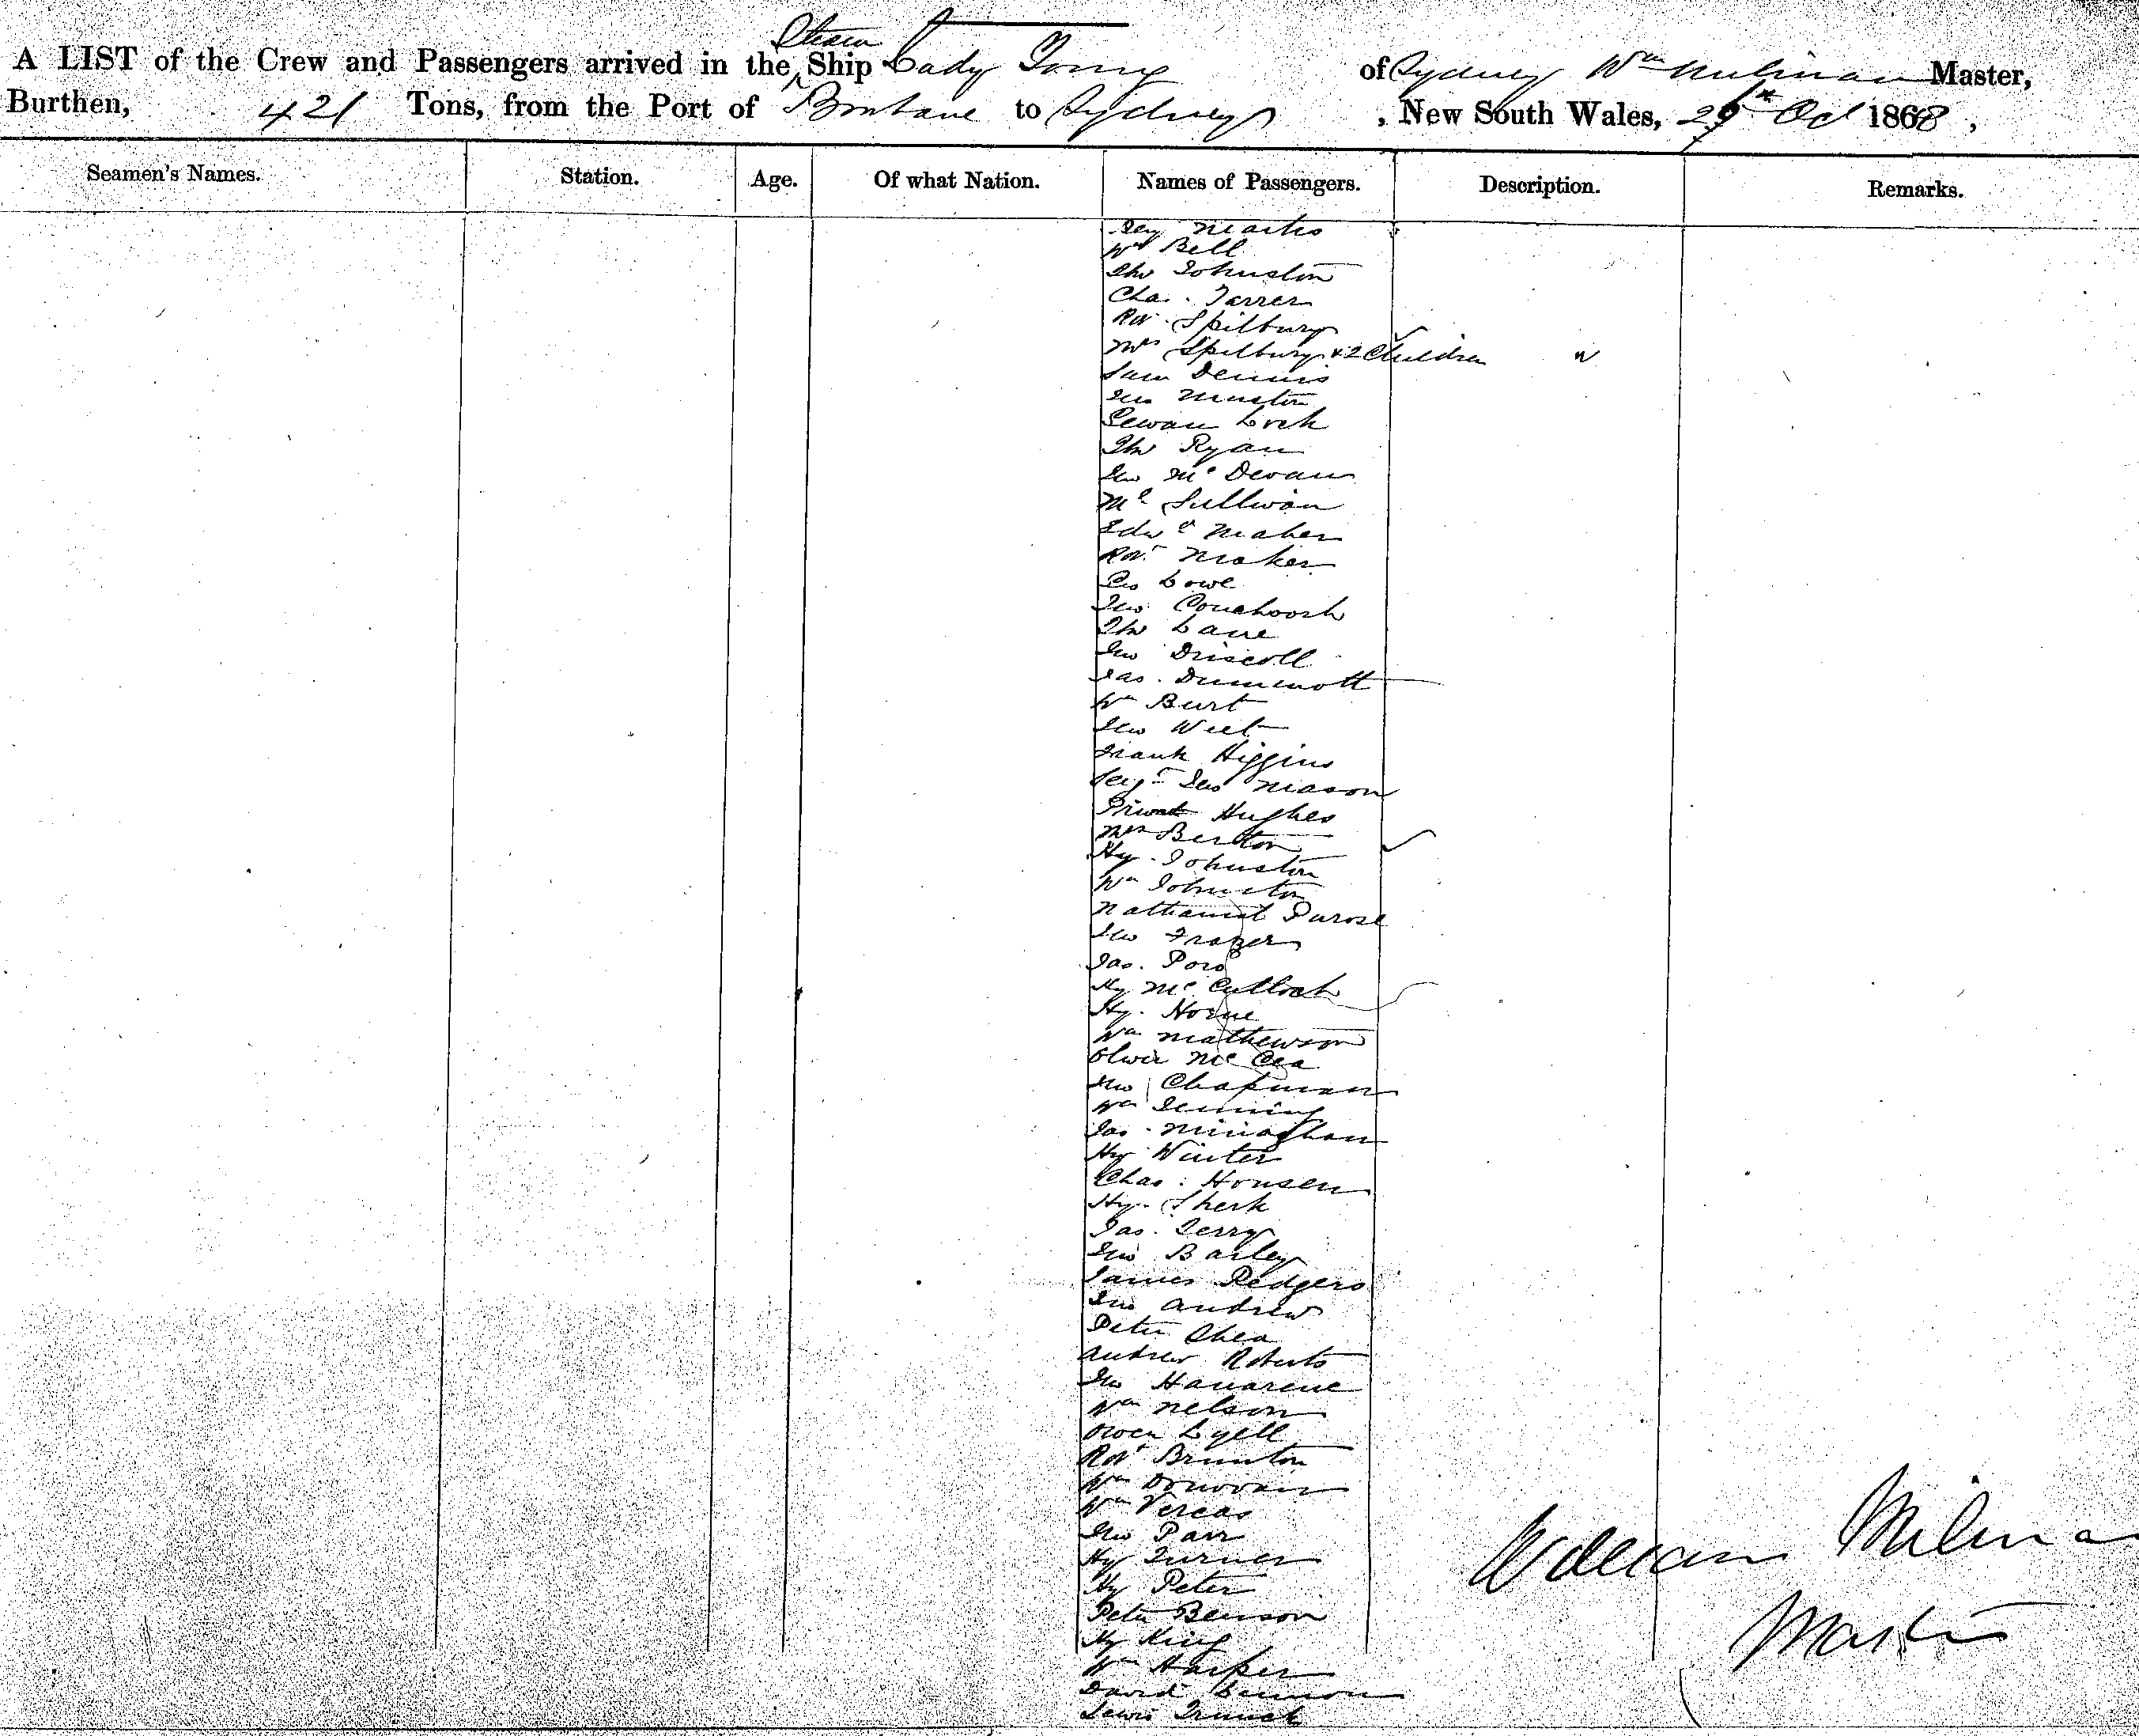 Steam
A LIST of the Crew and Passengers arrived in the Ship Lady Young of Sydney Wm Milman Master,
Burthen, 421 Tons, from the Port of Brisbane to Sydney, New South Wales, 29th Oct 1868,
Seamen's Names. Station. Age. Of what Nation. Names of Passengers. Description. Remarks.
Marks
Wm Bell
Tho Johnston
Cha. Farrer
Rot. Spilbury
Mrs Spilbury & 2 Children "
Sam Dennis
Jno
Lock
Tho Ryan
Jno McDevan
Ml Sullivan
Edwd Maher
Rot. Maher
Geo Lowe
Jno
Tho Lane
Jno Driscoll
Jas. Dummott
Wm Burt
Jno
Frank Higgins
Sergt Jno Mason
Private Hughes
Mrs Berton
Hy. Johnston
Wm Johnston
Nathaniel
Jno Frazer
Jas.
Hy McCulloch
Hy. Horne
Wm Mathewson
Oliver McCea
Jno Chapman
Wm
Jas. Minaghan
Hy Winter
Chas. Honsen
Hy. Sherk
Jas. Terry
Jno Barley
James Redgers
Jno Andrew
Peter Chea
Andrew Roberts
Jno Hanarene
Wm Nelson
Owen Lyell
Rot Brunton
Wm Donovan
Wm Vercas
Jno Parr
Hy Turner
Hy Peter
Peter Benson
Hy King
Wm Harper
David
Lewis
William Milman
Master